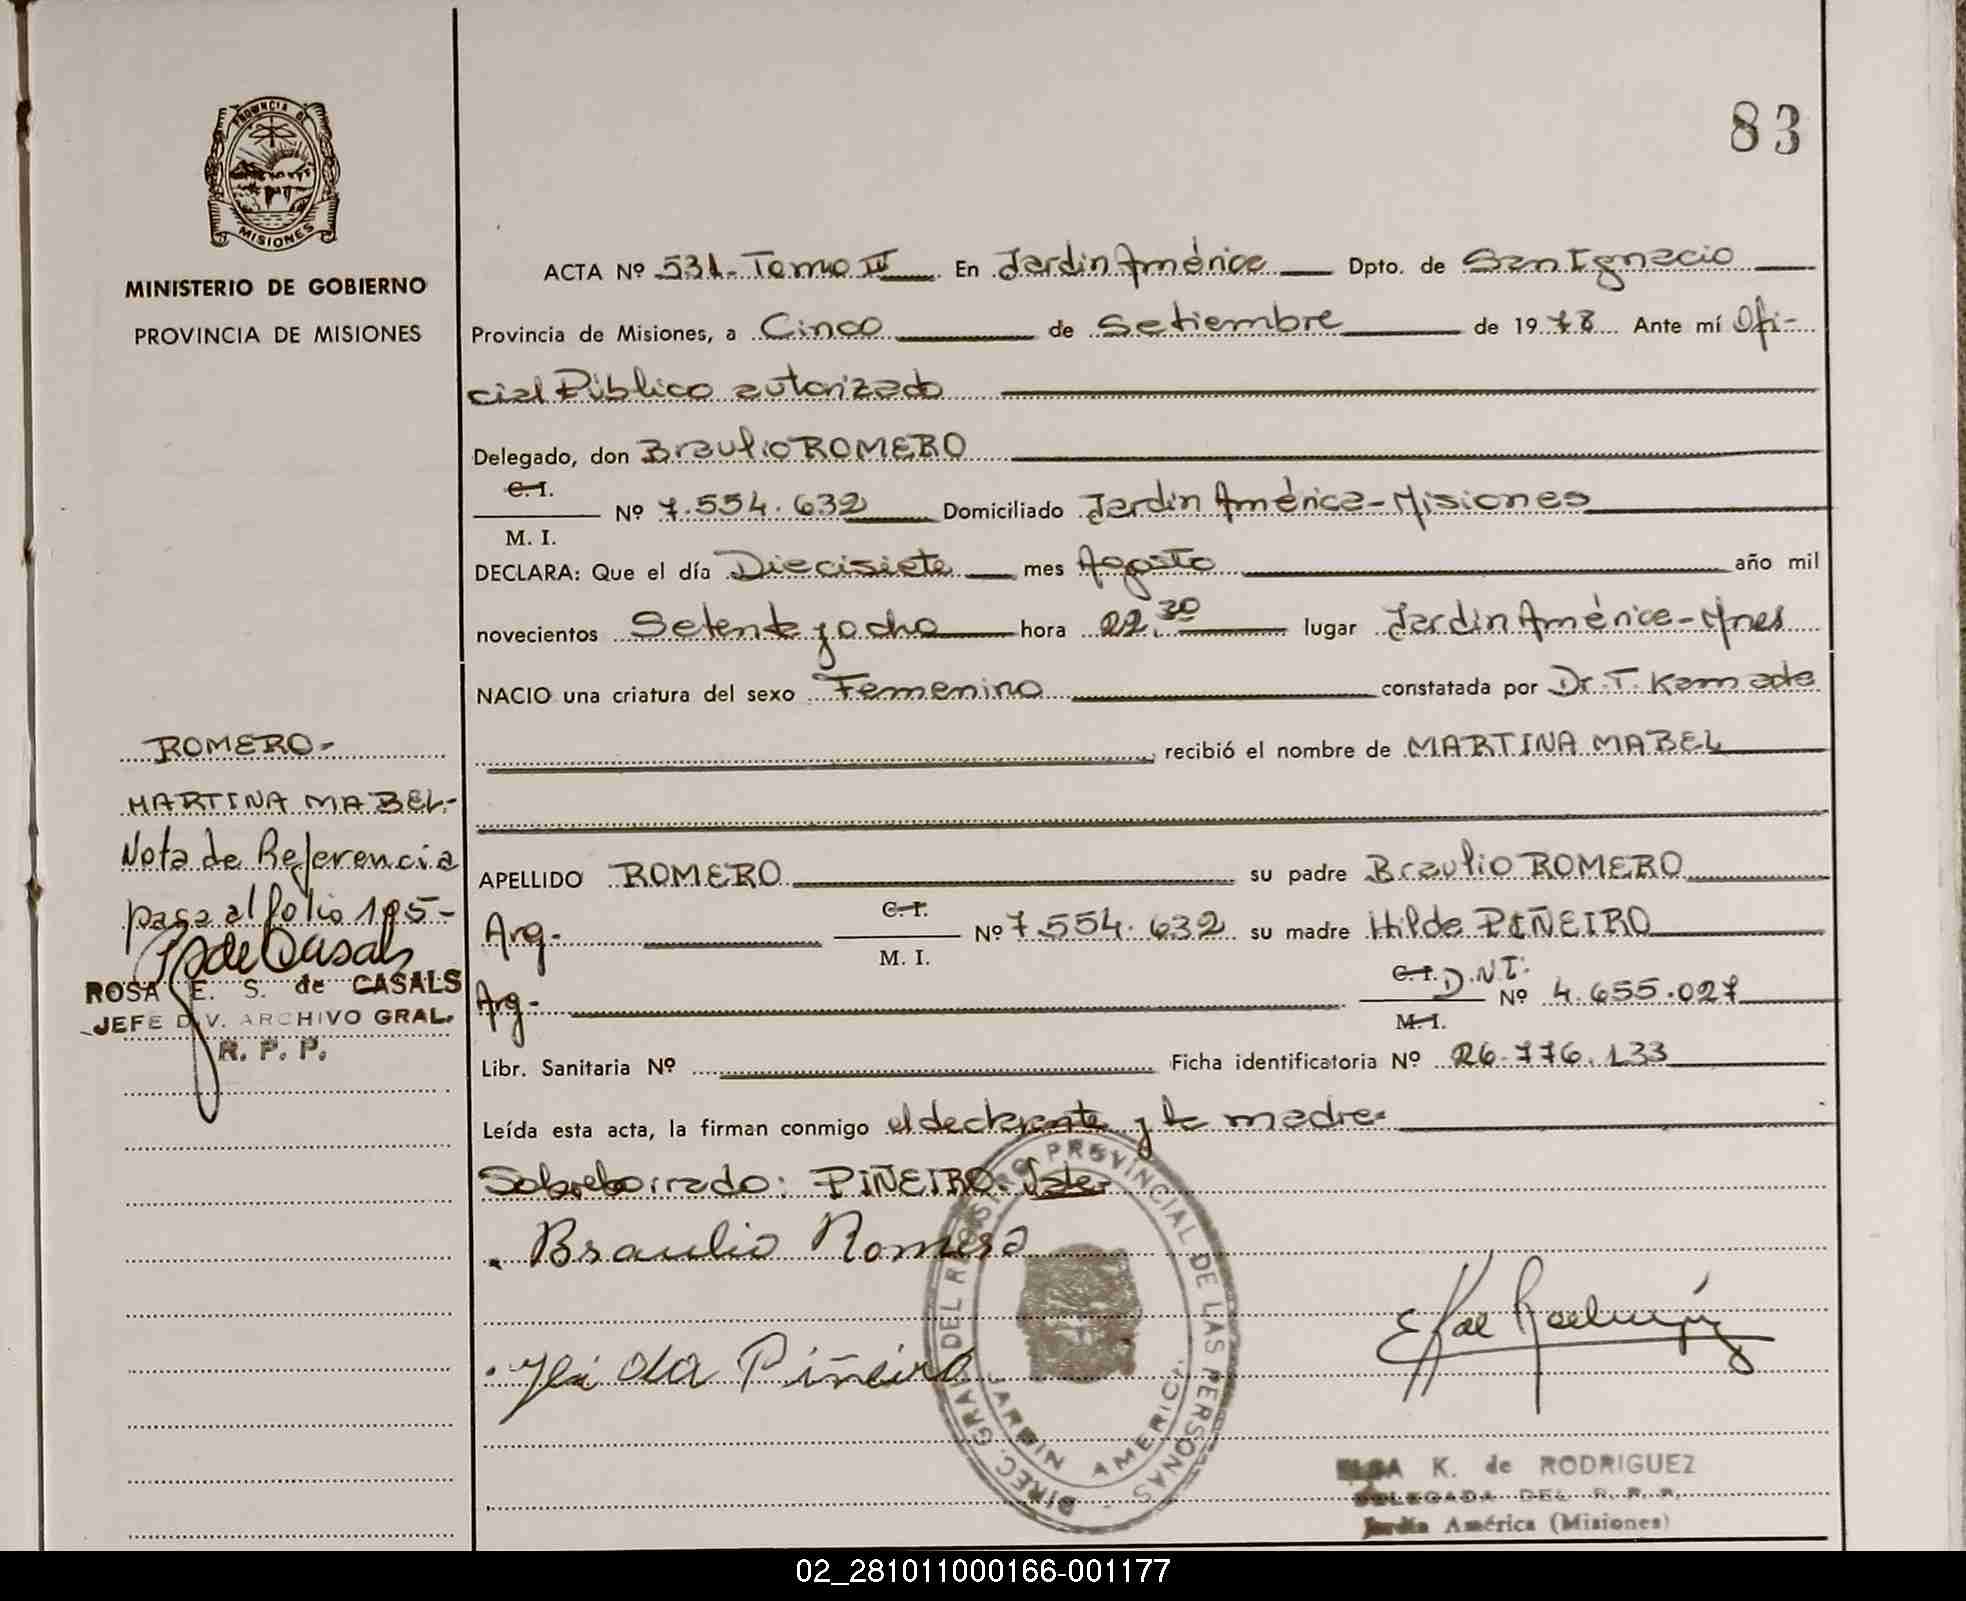 PROVINCIA DE
MISIONES
MINISTERIO DE GOBIERNO
PROVINCIA DE MISIONES
83
ACTA Nº 531- Tomo IV En Jardin América Dpto. de San Ignacio
Provincia de Misiones, a Cinco de Setiembre de 1978 Ante mí Ofi-
cial Público autorizado
Delegado, don Braulio ROMERO
C. I.
Nº 7.554.632 Domiciliado Jardin América-Misiones
M. I.
DECLARA: Que el día Diecisiete mes Agosto año mil
novecientos Setenta y ocho hora 22.30 lugar Jardin América-Mnes
NACIO una criatura del sexo Femenino constatada por Dr. T. Kamada
recibió el nombre de MARTINA MABEL
APELLIDO ROMERO su padre Braulio ROMERO
C. I.
Arg- Nº 7.554.632 su madre Hilda PIÑEIRO
M. I.
C. I. D.N.I.
Arg- Nº 4.655.027
M. I.
Libr. Sanitaria Nº Ficha identificatoria Nº 26.776.133
Leída esta acta, la firman conmigo el declarante y la madre-
Sobreborrado: PIÑEIRO. Vale.
Braulio Romero
Piñeiro
ROMERO-
MARTINA MABEL-
Nota de Referencia
pasa al folio 195-
R. de Casals
ROSA E. S. de CASALS
JEFE DIV. ARCHIVO GRAL.
R. P. P.
DIREC. GRAL. DEL REGISTRO PROVINCIAL DE LAS PERSONAS
JARDIN AMERICA
ELSA K. de RODRIGUEZ
DELEGADA DEL R. P. P.
Jardín América (Misiones)
02_281011000166-001177